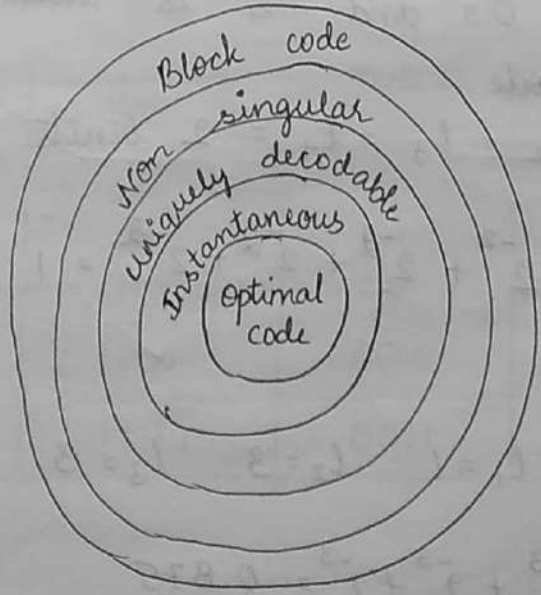 Block code
Non singular
Uniquely decodable
Instantaneous
Optimal
code